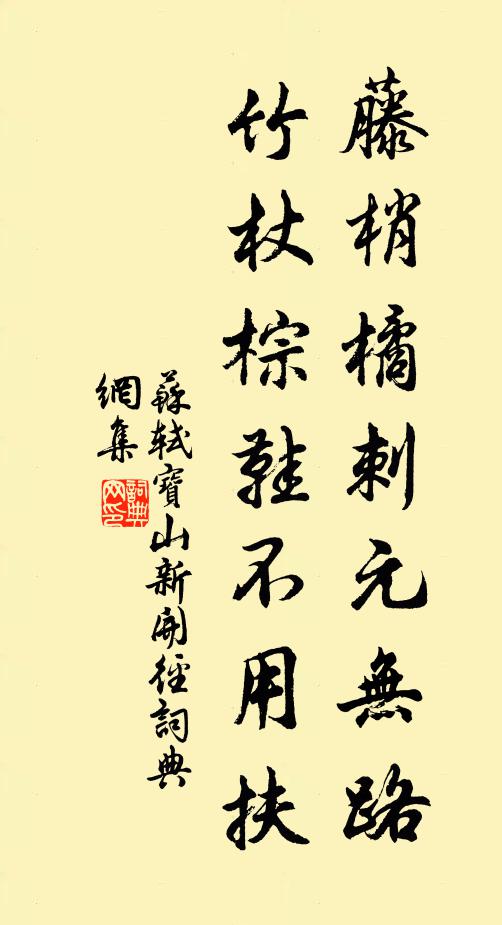 藤梢橘刺元無路
竹杖棕鞋不用扶
蘇軾寶山新開徑詞典
網集
詞典
网印